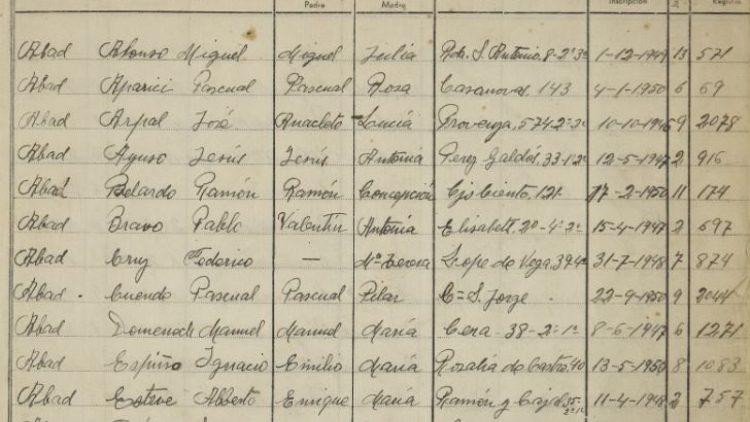 Padre Madre Inscripción Registro
Abad Alonso Miguel Miguel Julia Rda. S. Antonio, 8-2º3ª 1-12-1949 13 571
Abad Aparici Pascual Pascual Rosa Casanovas, 143 4-1-1950 6 69
Abad Arpal José Anacleto Lucía Provenza, 574-2º-3ª 10-10-1946 9 2078
Abad Ayuso Jesús Jesús Antonia Perez Galdós, 33-1º2ª 12-5-1947 2 916
Abad Belardo Ramón Ramón Concepción Cjo Ciento, 121- 17-2-1950 11 174
Abad Bravo Pablo Valentín Antonia Elisabeth, 20-4º-2ª 15-4-1947 2 697
Abad Cruz Federico — Mª Teresa Lope de Vega, 31-7-1948 7 874
Abad. Cuendo Pascual Pascual Pilar C= S. Jorge. 22-9-1950 9 2044
Abad Domenech Manuel Manuel María Cera - 38-2º-1ª 8-6-1947 6 1271
Abad Espiño Ignacio Emilio María Rosalía de Castro, 40 13-5-1950 8 1083
Abad Esteve Alberto Enrique María Ramón y Cajal, 35- 11-4-1948 2 757
2º1ª